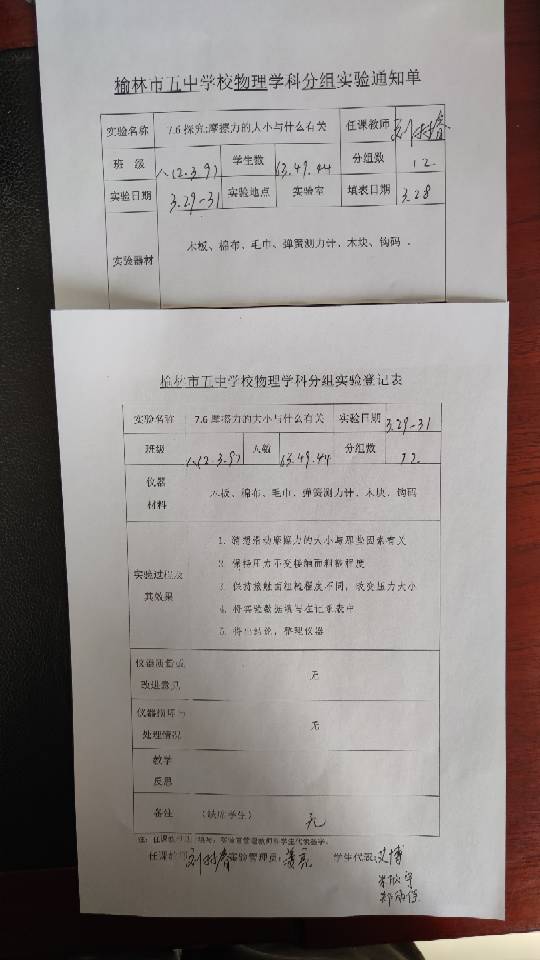 榆林市五中学校物理学科分组实验通知单
实验名称 7.6探究:摩擦力的大小与什么有关 任课教师
班 级 八(2.3.9) 学生数 63.49.44 分组数 12.
实验日期 3.29-31 实验地点 实验室 填表日期 3.28
实验器材 木板、棉布、毛巾、弹簧测力计、木块、钩码.
榆林市五中学校物理学科分组实验登记表
实验名称 7.6摩擦力的大小与什么有关 实验日期 3.29-31
班级 八(2.3.9) 人数 63.49.44 分组数 12.
仪器
材料
木板、棉布、毛巾、弹簧测力计、木块、钩码
实验过程及
其效果
1. 猜想滑动摩擦力的大小与那些因素有关
2. 保持压力不变接触面粗糙程度
3. 保持接触面粗糙程度不同,改变压力大小
4. 将实验数据填写在记录表中
5. 得出结论,整理仪器
仪器质量或
改进意见
无
仪器损坏与
处理情况
无
教学
反思
备注 (缺席学生) 无
注:任课教师填写,实验管理教师和学生代表签字。
任课教师: 实验管理员: 学生代表: